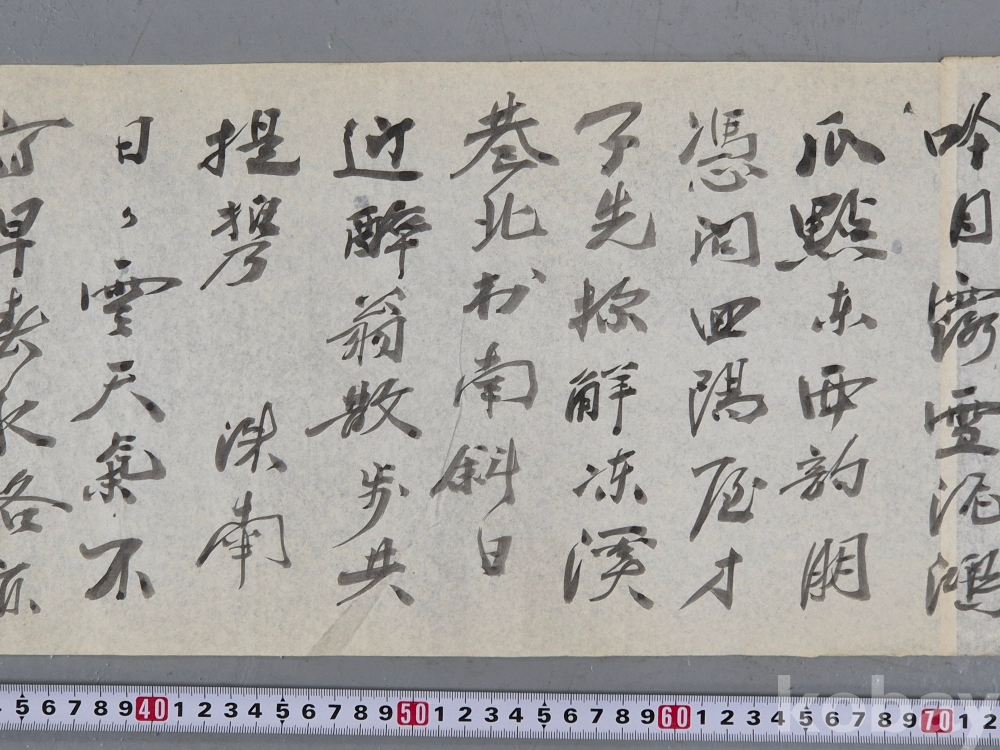 吟月露雪泥鴻
爪點東西韵朋
憑问四隅屋才
了先探解凍溪
巷北村南斜日
近醉翁散步共
提携 洙南
日々雪天氣不
早春衣各亦
5 6 7 8 9 40 1 2 3 4 5 6 7 8 9 50 1 2 3 4 5 6 7 8 9 60 1 2 3 4 5 6 7 8 9 70 1 2
kobay